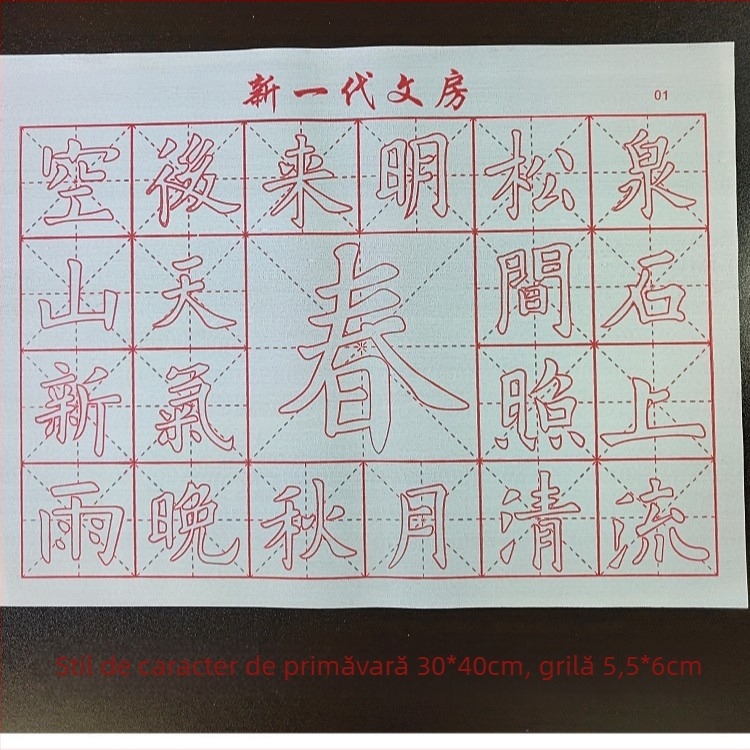 新一代文房
01
空後来明松泉
山天春間石
新氣照上
雨晚秋月清流
Stil de caracter de primăvară 30*40cm, grilă 5,5*6cm